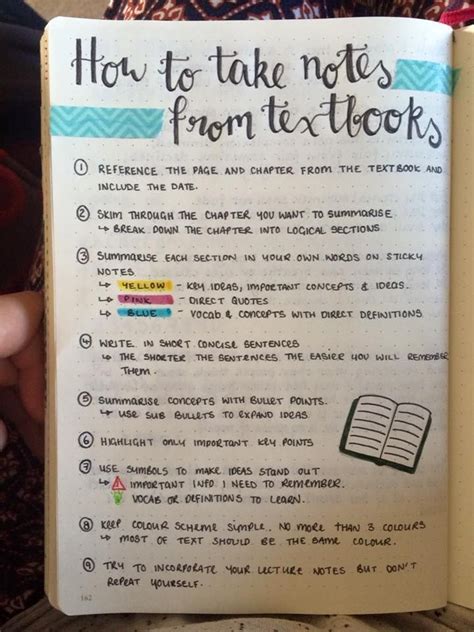 How to take notes
from textbooks
① REFERENCE THE PAGE AND CHAPTER FROM THE TEXTBOOK AND
INCLUDE THE DATE.
② SKIM THROUGH THE CHAPTER YOU WANT TO SUMMARISE
↳ BREAK DOWN THE CHAPTER INTO LOGICAL SECTIONS
③ SUMMARISE EACH SECTION IN YOUR OWN WORDS ON STICKY
NOTES
↳ YELLOW - KEY IDEAS, IMPORTANT CONCEPTS & IDEAS.
↳ PINK - DIRECT QUOTES
↳ BLUE - VOCAB & CONCEPTS WITH DIRECT DEFINITIONS.
④ WRITE IN SHORT CONCISE SENTENCES
↳ THE SHORTER THE SENTENCES THE EASIER YOU WILL REMEMBER
THEM.
⑤ SUMMARISE CONCEPTS WITH BULLET POINTS.
↳ USE SUB BULLETS TO EXPAND IDEAS
⑥ HIGHLIGHT ONLY IMPORTANT KEY POINTS
⑦ USE SYMBOLS TO MAKE IDEAS STAND OUT
↳ IMPORTANT INFO I NEED TO REMEMBER.
VOCAB OR DEFINITIONS TO LEARN.
⑧ KEEP COLOUR SCHEME SIMPLE. NO MORE THAN 3 COLOURS
↳ MOST OF TEXT SHOULD BE THE SAME COLOUR.
⑨ TRY TO INCORPORATE YOUR LECTURE NOTES BUT DON'T
REPEAT YOURSELF.
162